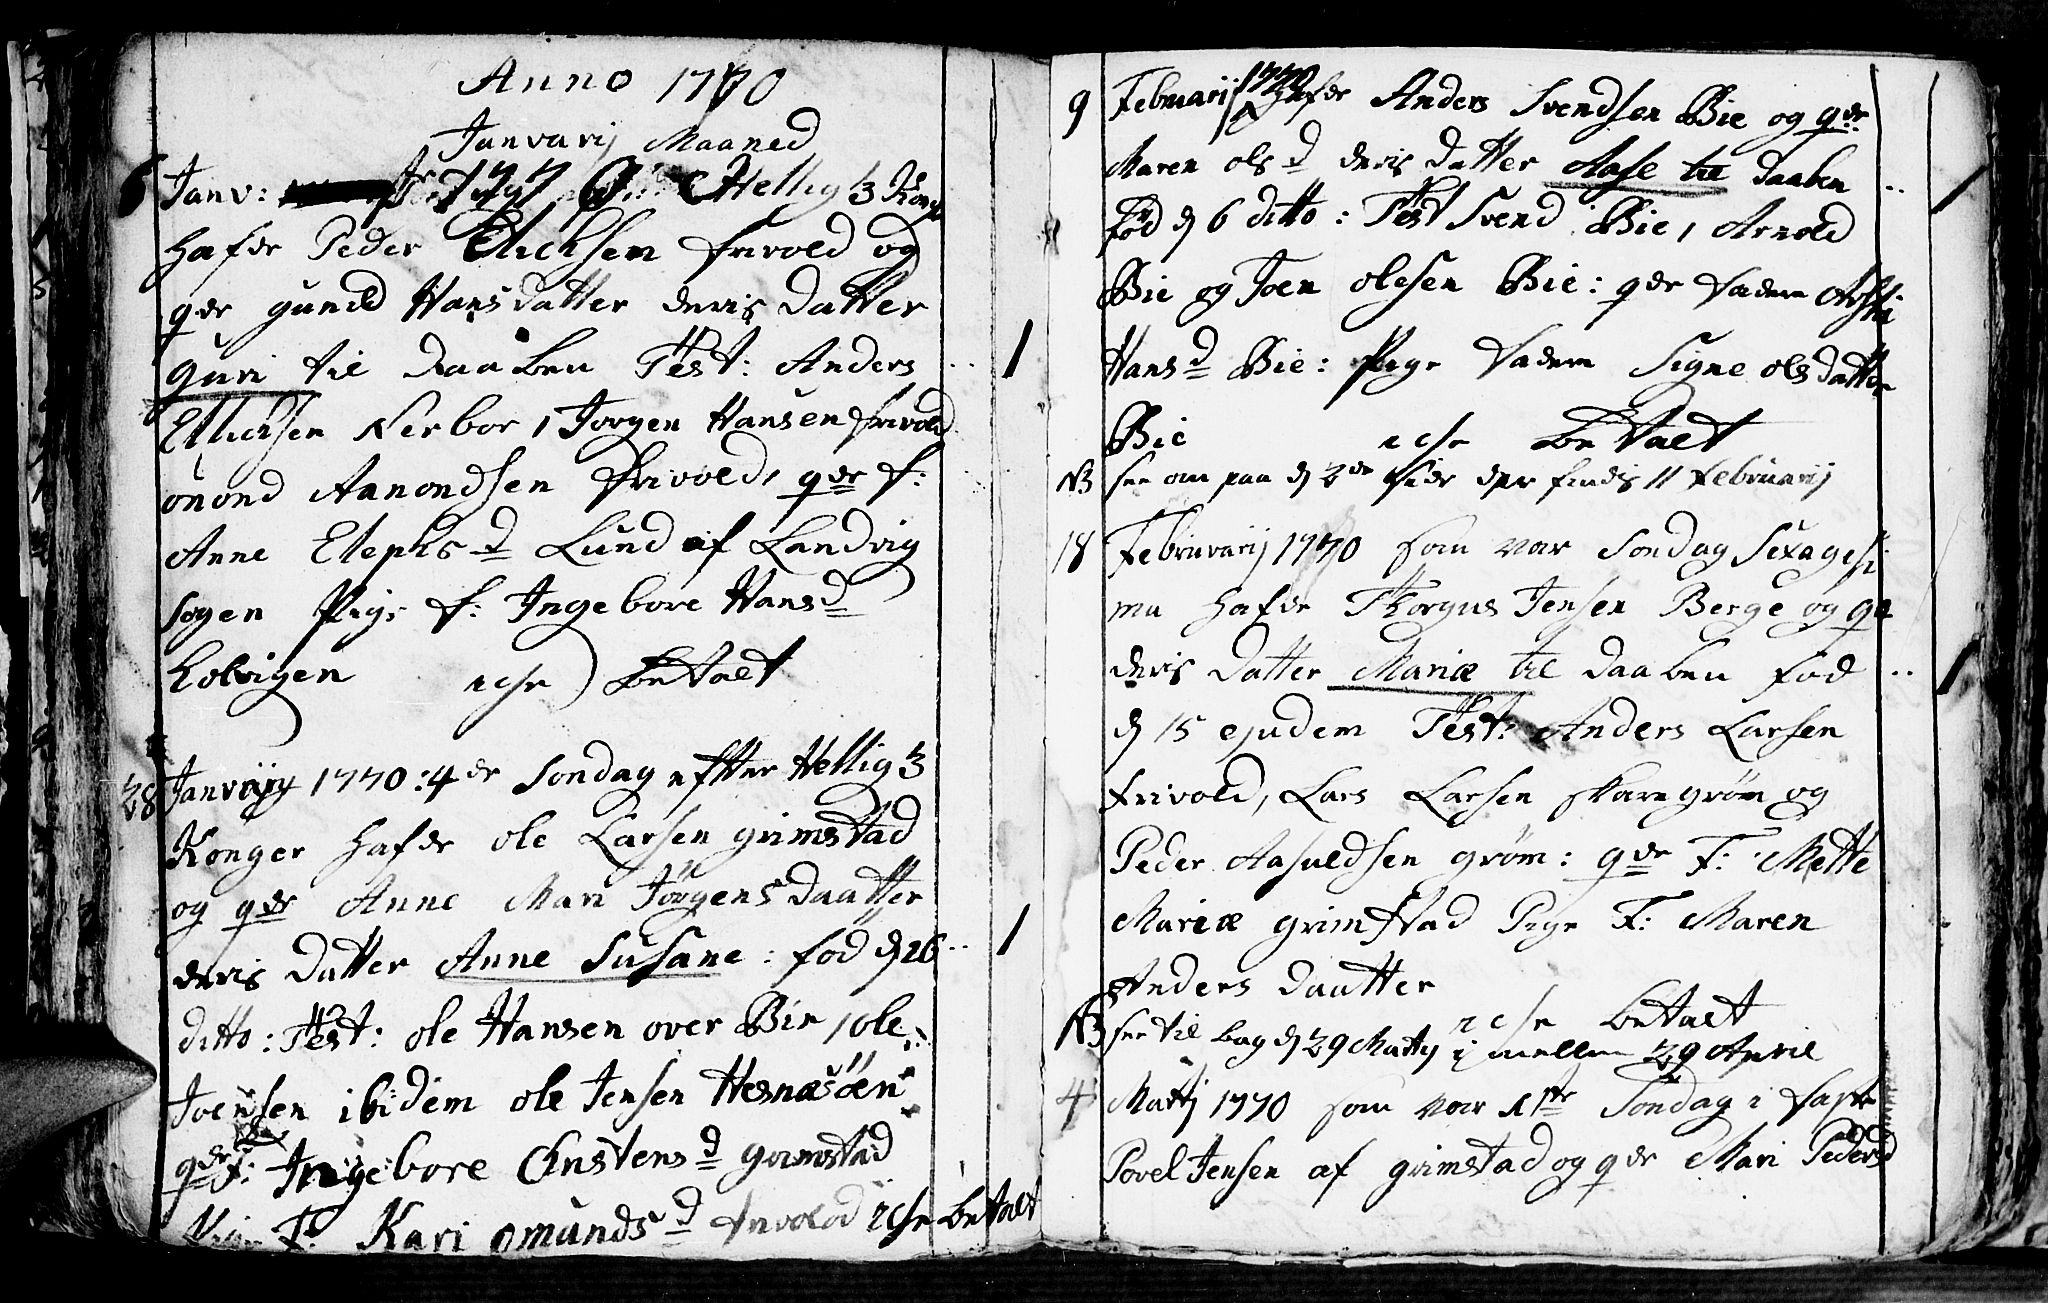 Anno 1770
Janvarij Maaned
6 Janv: Hellig 3 Kong
hafde Peder Ellichsen Frivold og
qde gunild Hans datter deris datter
Guri til daaben Test: Anders
Ellichsen Nerbor, Jorgen Hansen Frivold
onond Aanondsen Frivold, qde F:
Anne Elephs d Lund af Landvig
sogen Pige F: Ingebore Hansd
Kolvigen 2 ch betalt
28 Janvarij 1770: 4de Sondag efter Hellig 3
Konger hafde ole Larsen grimstad
og qde Anne Mari Jörgens daatter
deris datter Anne Susane: fod d 26
ditto: Test: ole Hansen over Bie, ole
Joensen ibidem ole Jensen Hesnæsöen
qde F: Ingebore Enstens d grimstad
Pige F: Kari omunds d Frivold betalt
9 Februarij 1770 hafde Anders Svendsen Bie og qde
Maren ols d deris datter Aase til daaben
fød d 6 ditto: Test Svend Bie, Arnold
Bie og Joen olesen Bie: qde fadere
Hans d Bie: Pige fadere Signe ols datter
Bie betalt
NB see om paa d 2de side der findis 11 Februarij
18 Februvarij 1770 som var Sondag Sexagesi
ma hafde Thorgus Jensen Berge og qe
deris datter Mariæ til daaben fød
d 15 ejudem Test: Anders Larsen
Frivold, Lars Larsen skaregrøm og
Peder Aasuldsen grøm: qde F: Mette
Mariæ grimstad Pige F: Maren
Anders daatter
betalt
NB see til bag d 29 Martij i mellem 29 April
4 Martij 1770 som var 1ste Söndag i Faste
Povel Jensen af grimstad og qde Mari Pedersd